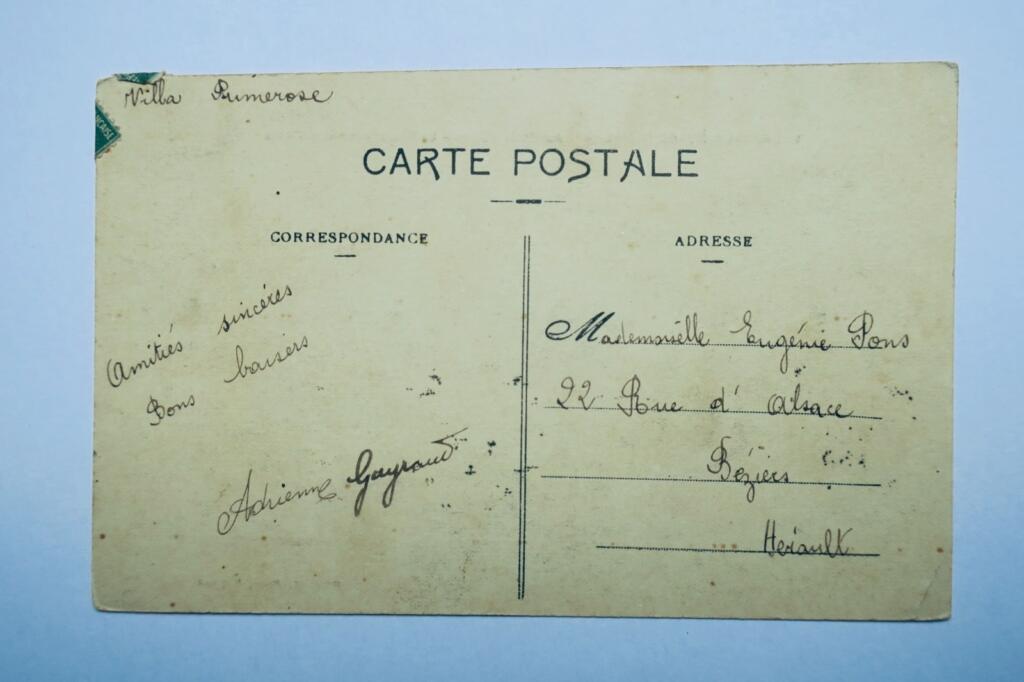 Villa Primerose
ÇAISE
CARTE POSTALE
CORRESPONDANCE
Amitiés sincéres
Bons baisers
Adrienne Gayraud
ADRESSE
Mademoiselle Eugénie Pons
22 Rue d' Alsace
Béziers
Herault